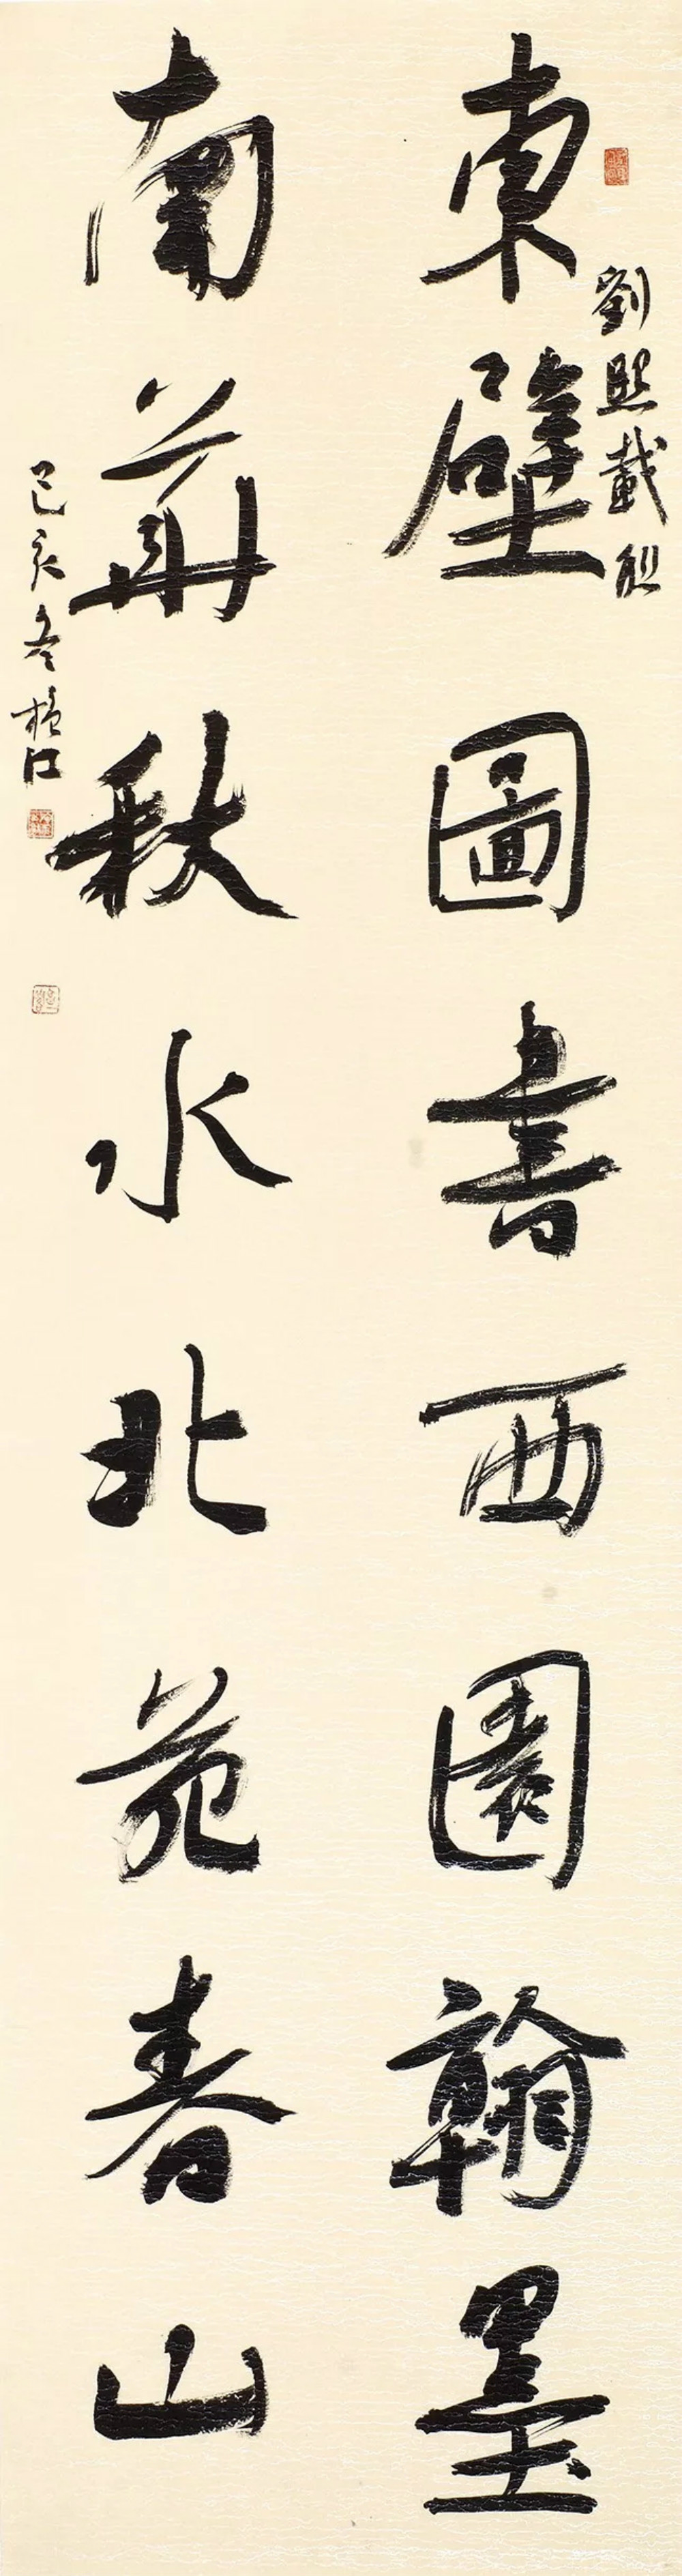 東壁圖書西園翰墨
南華秋水北苑春山
劉熙載聯
己亥冬